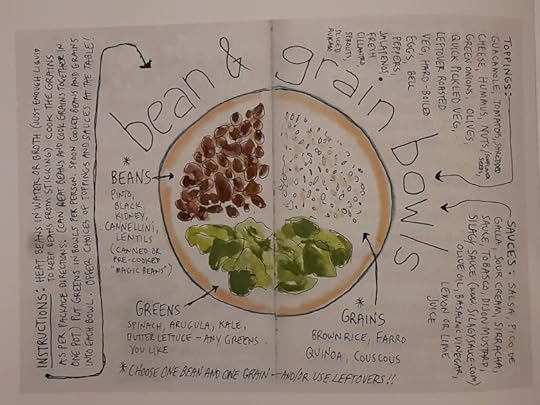 bean & grain bowls
TOPPINGS:
GUACAMOLE, TOMATOES, SHREDDED
CHEESE, HUMMUS, NUTS/SUNFLOWER SEEDS,
GREEN ONIONS, OLIVES,
QUICK PICKLED VEG,
LEFTOVER ROASTED
VEG, HARD-BOILED
EGGS, BELL
PEPPERS,
JALAPENOS,
FRESH
CILANTRO,
SPROUTS,
SLICED
SAUCES: SALSA, PICO DE
GALLA, SOUR CREAM, SIRRACHA,
SAUCE, TOBASCO, DIJON MUSTARD,
SILAGY SAUCE (WWW.SILAGYSAUCE.COM)
OLIVE OIL, BASALMIC VINEGAR,
LEMON OR LIME
JUICE
* BEANS
PINTO,
BLACK,
KIDNEY,
CANNELLINI,
LENTILS
(CANNED OR
PRE-COOKED
"MAGIC BEANS")
GREENS
SPINACH, ARUGULA, KALE,
BUTTER LETTUCE - ANY GREENS
YOU LIKE
* GRAINS
BROWN RICE, FARRO
QUINOA, COUSCOUS
* CHOOSE ONE BEAN AND ONE GRAIN - AND/OR USE LEFTOVERS!!
INSTRUCTIONS: HEAT BEANS IN WATER OR BROTH (JUST ENOUGH LIQUID
TO KEEP BEANS FROM STICKING) COOK THE GRAINS
AS PER PACKAGE DIRECTIONS. (CAN HEAT BEANS AND COOK GRAINS TOGETHER IN
ONE POT) PUT GREENS IN BOWLS PER PERSON. SPOON COOKED BEANS AND GRAINS
INTO EACH BOWL. OFFER CHOICES OF TOPPINGS AND SAUCES AT THE TABLE!